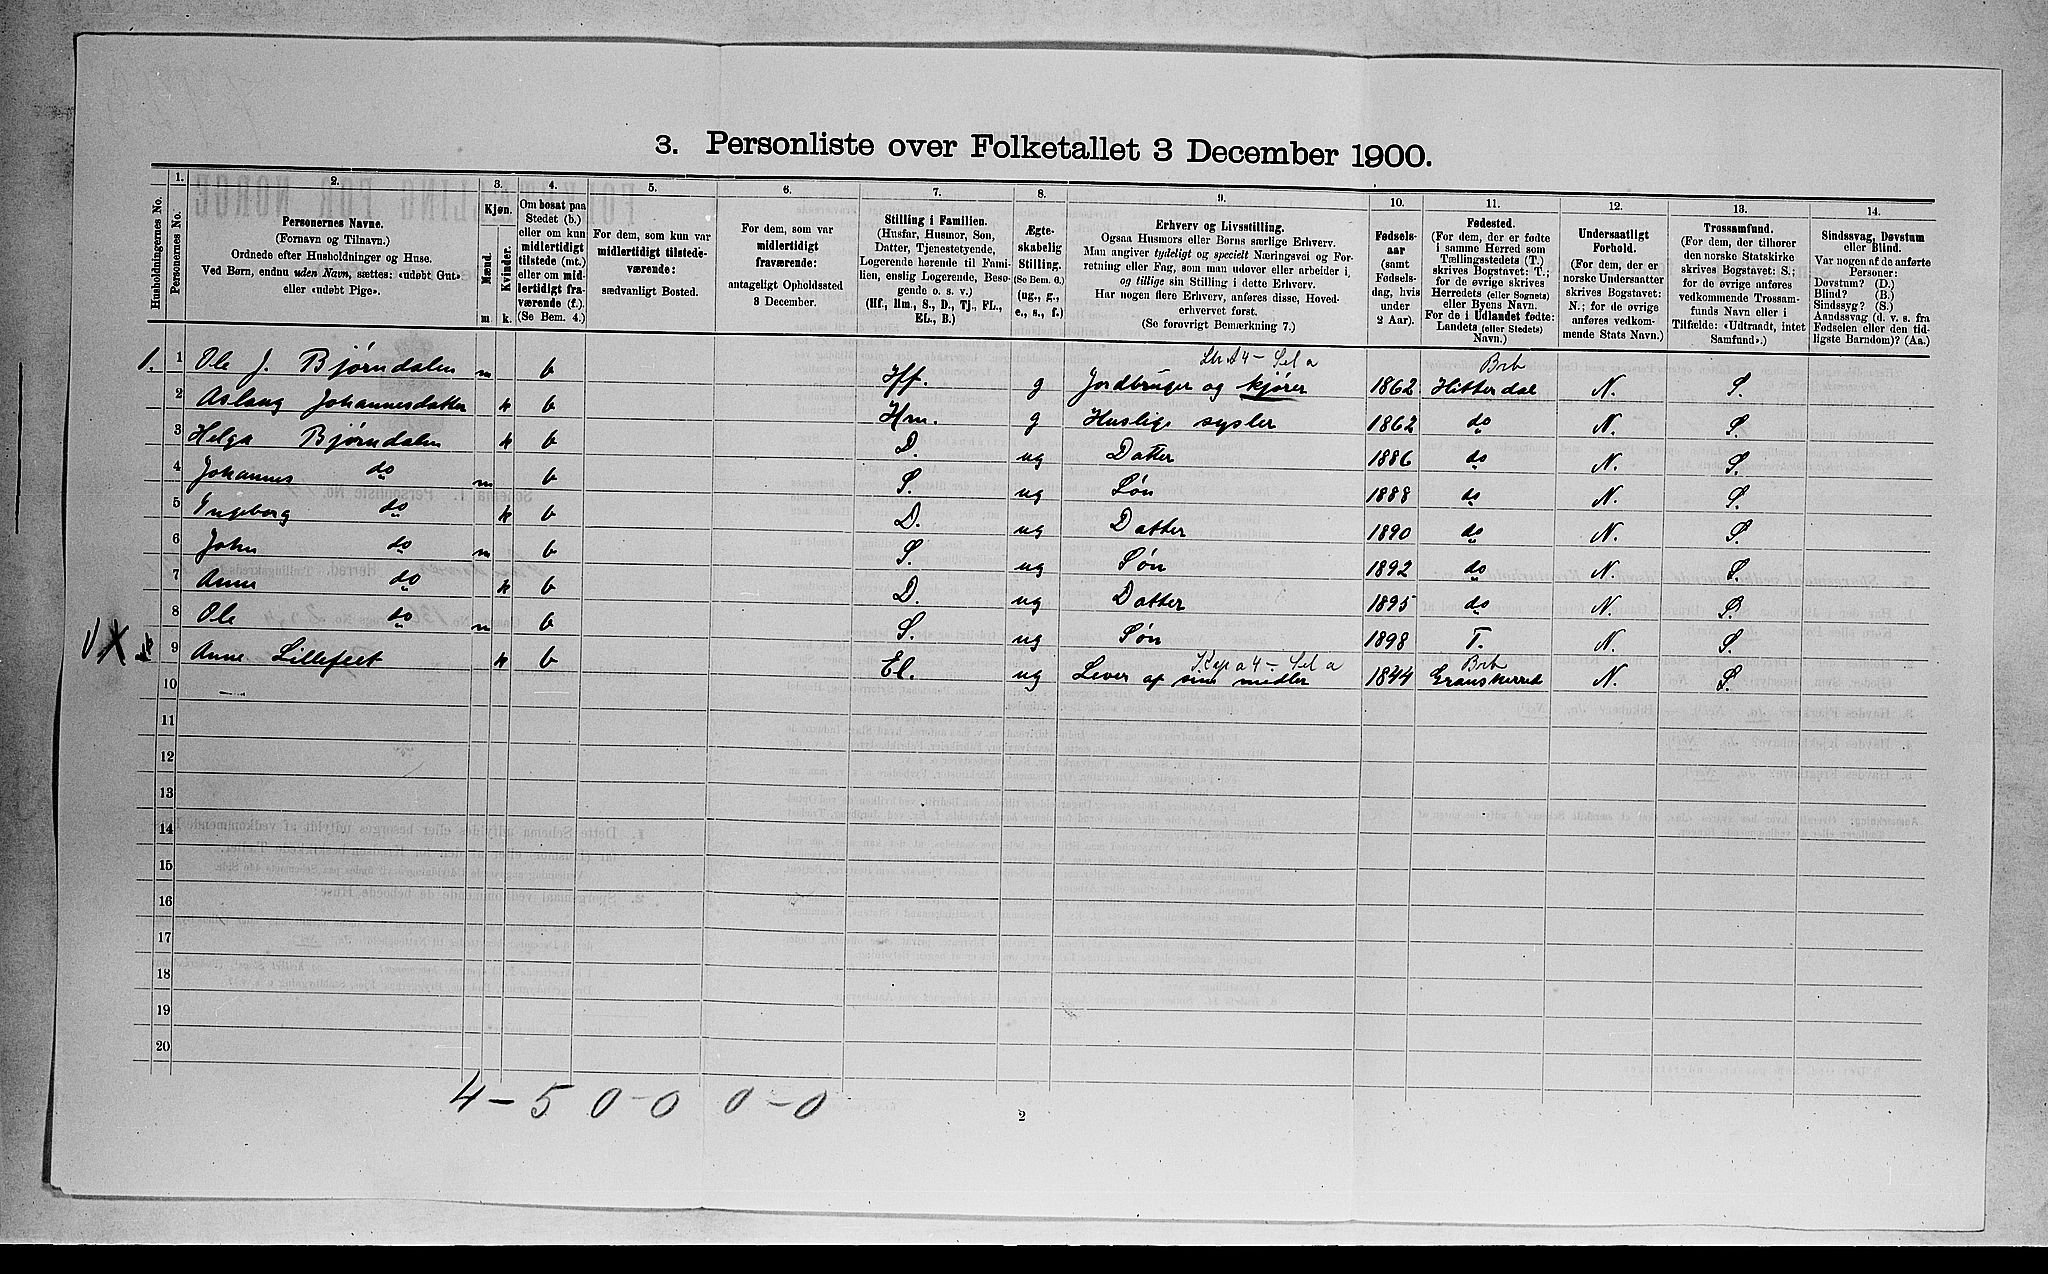 3. Personliste over Folketallet 3 December 1900.
Husholdningernes No.
1. Personernes No.
2. Personernes Navne.
(Fornavn og Tilnavn.)
Ordnede efter Husholdninger og Huse.
Ved Børn, endnu uden Navn, sættes: «udøbt Gut»
eller «udøbt Pige».
3. Kjøn.
Mænd. m
Kvinder. k.
4. Om bosat paa
Stedet (b.)
eller om kun
midlertidigt
tilstede (mt.)
eller om mid-
lertidigt fra-
værende (f.).
(Se Bem. 4.)
5. For dem, som kun var
midlertidigt tilstede-
værende:
sædvanligt Bosted.
6. For dem, som var
midlertidigt
fraværende:
antageligt Opholdssted
3 December.
7. Stilling i Familien.
(Husfar, Husmor, Søn,
Datter, Tjenestetyende,
Logerende hørende til Fami-
lien, enslig Logerende, Besø-
gende o. s. v.)
(Hf., Hm., S., D., Tj., FL.,
EL., B.)
8. Ægte-
skabelig
Stilling.
(Se Bem. 6.)
(ug., g.,
e., s., f.)
9. Erhverv og Livsstilling.
Ogsaa Husmors eller Børns særlige Erhverv.
Man angiver tydeligt og specielt Næringsvei og For-
retning eller Fag, som man udover eller arbeider i,
og tillige sin Stilling i dette Erhverv.
Har nogen flere Erhverv, anføres disse, Hoved-
erhvervet først.
(Se forøvrigt Bemærkning 7.)
10. Fødsels-
aar
(samt
Fødsels-
dag, hvis
under
2 Aar).
11. Fødested.
(For dem, der er fødte
i samme Herred som
Tællingsstedets (T.)
skrives Bogstavet: T.;
for de øvrige skrives
Herredets (eller Sognets)
eller Byens Navn.
For de i Udlandet fødte:
Landets (eller Stedets)
Navn.)
12. Undersaatligt
Forhold.
(For dem, der er
norske Undersaatter
skrives Bogstavet:
N.; for de øvrige
anføres vedkom-
mende Stats Navn.)
13. Trossamfund.
(For dem, der tilhører
den norske Statskirke
skrives Bogstavet: S.;
for de øvrige anføres
vedkommende Trossam-
funds Navn eller i
Tilfælde: «Udtraadt, intet
Samfund».)
14. Sindssvag, Døvstum
eller Blind.
Var nogen af de anførte
Personer:
Døvstum? (D.)
Blind? (B.)
Sindssyg? (S.)
Aandssvag (d. v. s. fra
Fødselen eller den tid-
ligste Barndom)? (Aa.)
1. 1 Ole J. Bjørndalen m b Hf. g Jordbruger og kjører 1862 Hitterdal N. S.
2 Aslaug Johannesdatter k b Hm. g Huslige sysler 1862 do N. S.
3 Helga Bjørndalen k b D. ug Datter 1886 do N. S.
4 Johannes do m b S. ug Søn 1888 do N. S.
5 Ingeborg do k b D. ug Datter 1890 do N. S.
6 John do m b S. ug Søn 1892 do N. S.
7 Anne do k b D. ug Datter 1895 do N. S.
8 Ole do m b S. ug Søn 1898 T. N. S.
9 Anne Lillefeet k b El. ug Lever af sine midler 1844 Gransherred N. S.
10
11
12
13
14
15
16
17
18
19
20
4-5 0-0 0-0
2